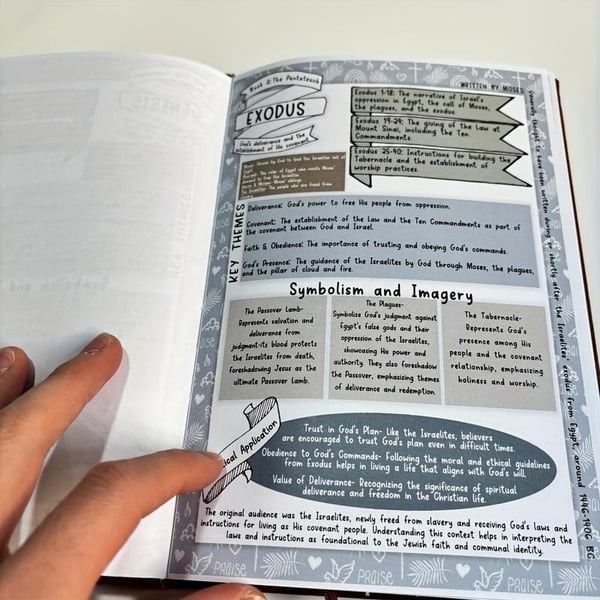 Book 2: The Pentateuch
EXODUS
God's deliverance and the
establishment of His covenant
WRITTEN BY MOSES
Exodus 1-18: The narrative of Israel's
oppression in Egypt, the call of Moses,
the plagues, and the exodus.
Exodus 19-24: The giving of the Law at
Mount Sinai, including the Ten
Commandments.
Exodus 25-40: Instructions for building the
Tabernacle and the establishment of
worship practices.
Moses: Chosen by God to lead the Israelites out of
Egypt.
Pharaoh: The ruler of Egypt who resists Moses'
demand to free the Israelites
Aaron & Miriam: Moses' siblings
The Israelites: The people who are freed from
KEY THEMES
Deliverance: God's power to free His people from oppression.
Covenant: The establishment of the Law and the Ten Commandments as part of
the covenant between God and Israel.
Faith & Obedience: The importance of trusting and obeying God's commands.
God's Presence: The guidance of the Israelites by God through Moses, the plagues,
and the pillar of cloud and fire.
Symbolism and Imagery
The Passover Lamb-
Represents salvation and
deliverance from
judgment-its blood protects
the Israelites from death,
foreshadowing Jesus as the
ultimate Passover Lamb.
The Plagues-
Symbolize God's judgment against
Egypt's false gods and their
oppression of the Israelites,
showcasing His power and
authority. They also foreshadow
the Passover, emphasizing themes
of deliverance and redemption.
The Tabernacle-
Represents God's
presence among His
people and the covenant
relationship, emphasizing
holiness and worship.
ical Application
Trust in God's Plan- Like the Israelites, believers
are encouraged to trust God's plan even in difficult times.
Obedience to God's Commands- Following the moral and ethical guidelines
from Exodus helps in living a life that aligns with God's will.
Value of Deliverance- Recognizing the significance of spiritual
deliverance and freedom in the Christian life.
The original audience was the Israelites, newly freed from slavery and receiving God's laws and
instructions for living as His covenant people. Understanding this context helps in interpreting the
laws and instructions as foundational to the Jewish faith and communal identity.
thought to have been written during or shortly after the Israelites' exodus from Egypt, around 1446-1406 BC
PRAISE
PRAISE
PRAISE